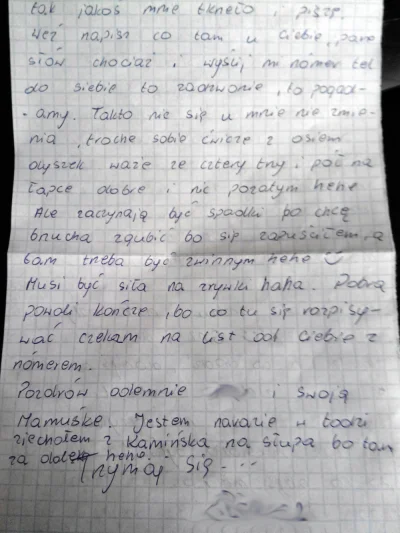 tak jakoś mnie tkneło i piszę.
Weź napisz co tam u Ciebie, parę
słów chociaż i wyślij mi nómer tel
do siebie to zadzwonie, to pogad-
-amy. Takto nic się u mnie nie zmie-
nia, troche sobie ćwicze z osiem
dyszek waże ze cztery try i pół na
łapce dobre i nic pozatym hehe
Ale zaczynają być spadki bo chcę
brzucha zgubić bo się zapuściłem, a
tam trzeba być zwinnym hehe
Musi być siła na zrywku haha. Dobra
powoli kończe, bo co tu się rozpisy-
wać czekam na list od Ciebie z
nómerem.
Pozdrów odemnie i swoją
Mamuśkę. Jestem narazie w Łodzi
ziechałem z Kamińska na słupa bo tam
za hehe.
Trzymaj się - ...